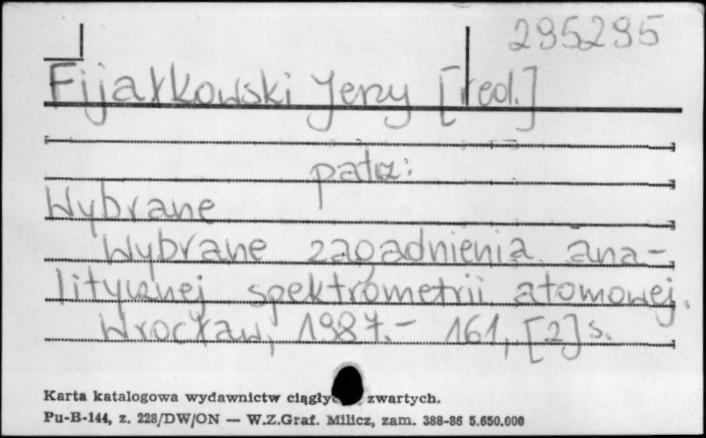 295295
Fijałkowski Jerzy [red.]
patrz:
Wybrane
Wybrane zagadnienia ana-
litycznej spektrometrii atomowej.
Wrocław, 1987.- 161, [2] s.
Karta katalogowa wydawnictw zwartych.
Pu-B-144, z. 228/DW/ON — W.Z.Graf. Milicz, zam. 388-86 5.650.000